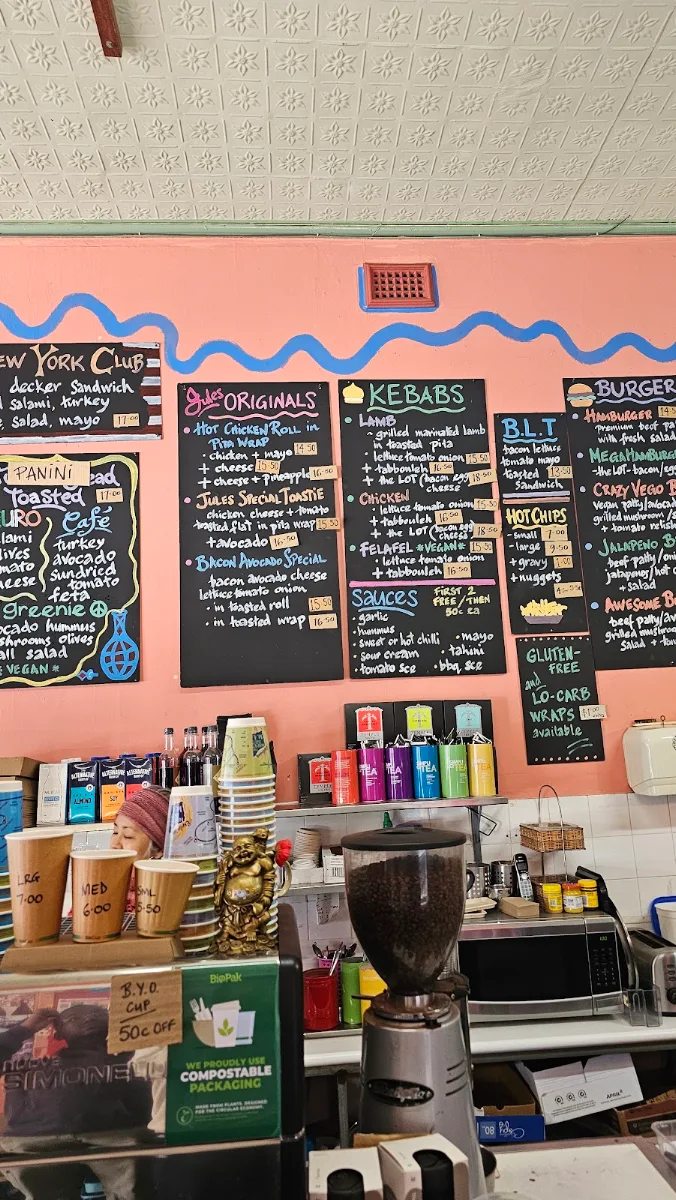 EW YORK CLUB
decker Sandwich
salami, turkey
e salad, mayo 17.00
PANINI
Toasted 17.00
URO
lami
lives
mato
heese
Café
turkey
avocado
sundried
tomato
feta
greenie
ocado hummus
shrooms olives
all salad
*VEGAN*
Jules ORIGINALS
HOT CHICKEN ROLL in
PITA WRAP
chicken + mayo 14.50
+ cheese 15.50
+ cheese + pineapple 16.50
JULES SPECIAL TOASTIE
chicken cheese + tomato
toasted flat in pita wrap 15.50
+ avocado 16.50
BACON AVOCADO SPECIAL
bacon avocado cheese
lettuce tomato onion
- in toasted roll 15.50
- in toasted wrap 16.50
KEBABS
LAMB
grilled marinated lamb
in toasted pita
lettuce tomato onion 15.50
+ tabbouleh 16.50
+ the LOT (bacon egg cheese) 18.50
CHICKEN
lettuce tomato onion 15.50
+ tabbouleh 16.50
+ the LOT (bacon egg cheese) 18.50
FELAFEL *VEGAN* 15.50
lettuce tomato onion
+ tabbouleh 16.50
SAUCES
FIRST 2
FREE/THEN
50c ea
garlic
hummus
sweet or hot chilli
sour cream
tomato sce
mayo
tahini
bbq sce
B.L.T
bacon lettuce
tomato mayo
toasted 13.50
Sandwich
HOT CHIPS
small 7.00
large 9.50
+ gravy 1.00
+ nuggets
GLUTEN-
FREE
and
LO-CARB
WRAPS
available
BURGER
HAMBURGER 14.5
Premium beef pa
with fresh salad
MEGA HAMBURG
the LOT-bacon/eg
CRAZY VEGO B
vegan patty/avocad
grilled mushroom /
+ tomato relish
JALAPENO B
beef patty/oni
jalapenos/hot c
+ salad
AWESOME B
beef patty/av
grilled mushroo
Salad + tom
TEA
TEA
TEA
LRG
7.00
MED
6.00
SML
5.50
B.Y.O
CUP
50c OFF
BioPak
WE PROUDLY USE
COMPOSTABLE
PACKAGING
MADE FROM PLANTS. DESIGNED
FOR THE CIRCULAR ECONOMY.
SIMONELLI